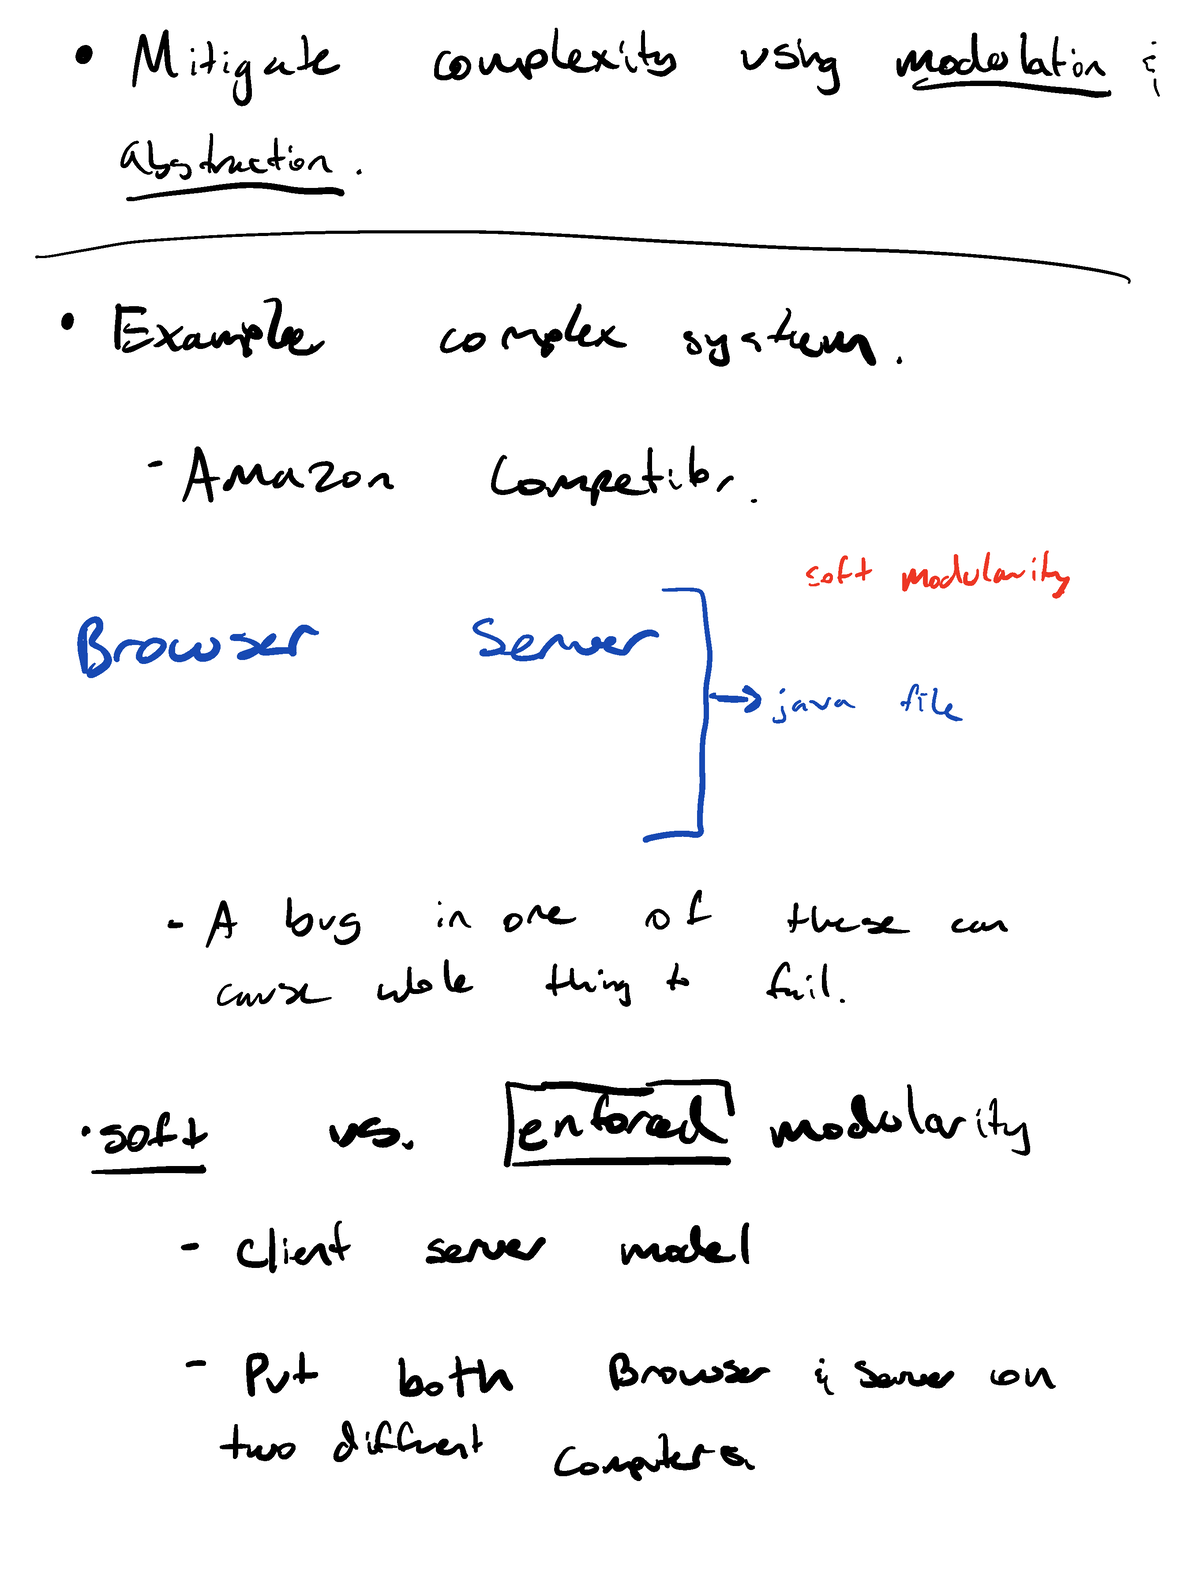 • Mitigate complexity using modulation &
abstraction.
• Example complex system.
- Amazon Competitor.
soft modularity
Browser Server
→ java file
- A bug in one of these can
cause whole thing to fail.
• soft vs. enforced modularity
- Client server model
- Put both Browser & Server on
two different computers